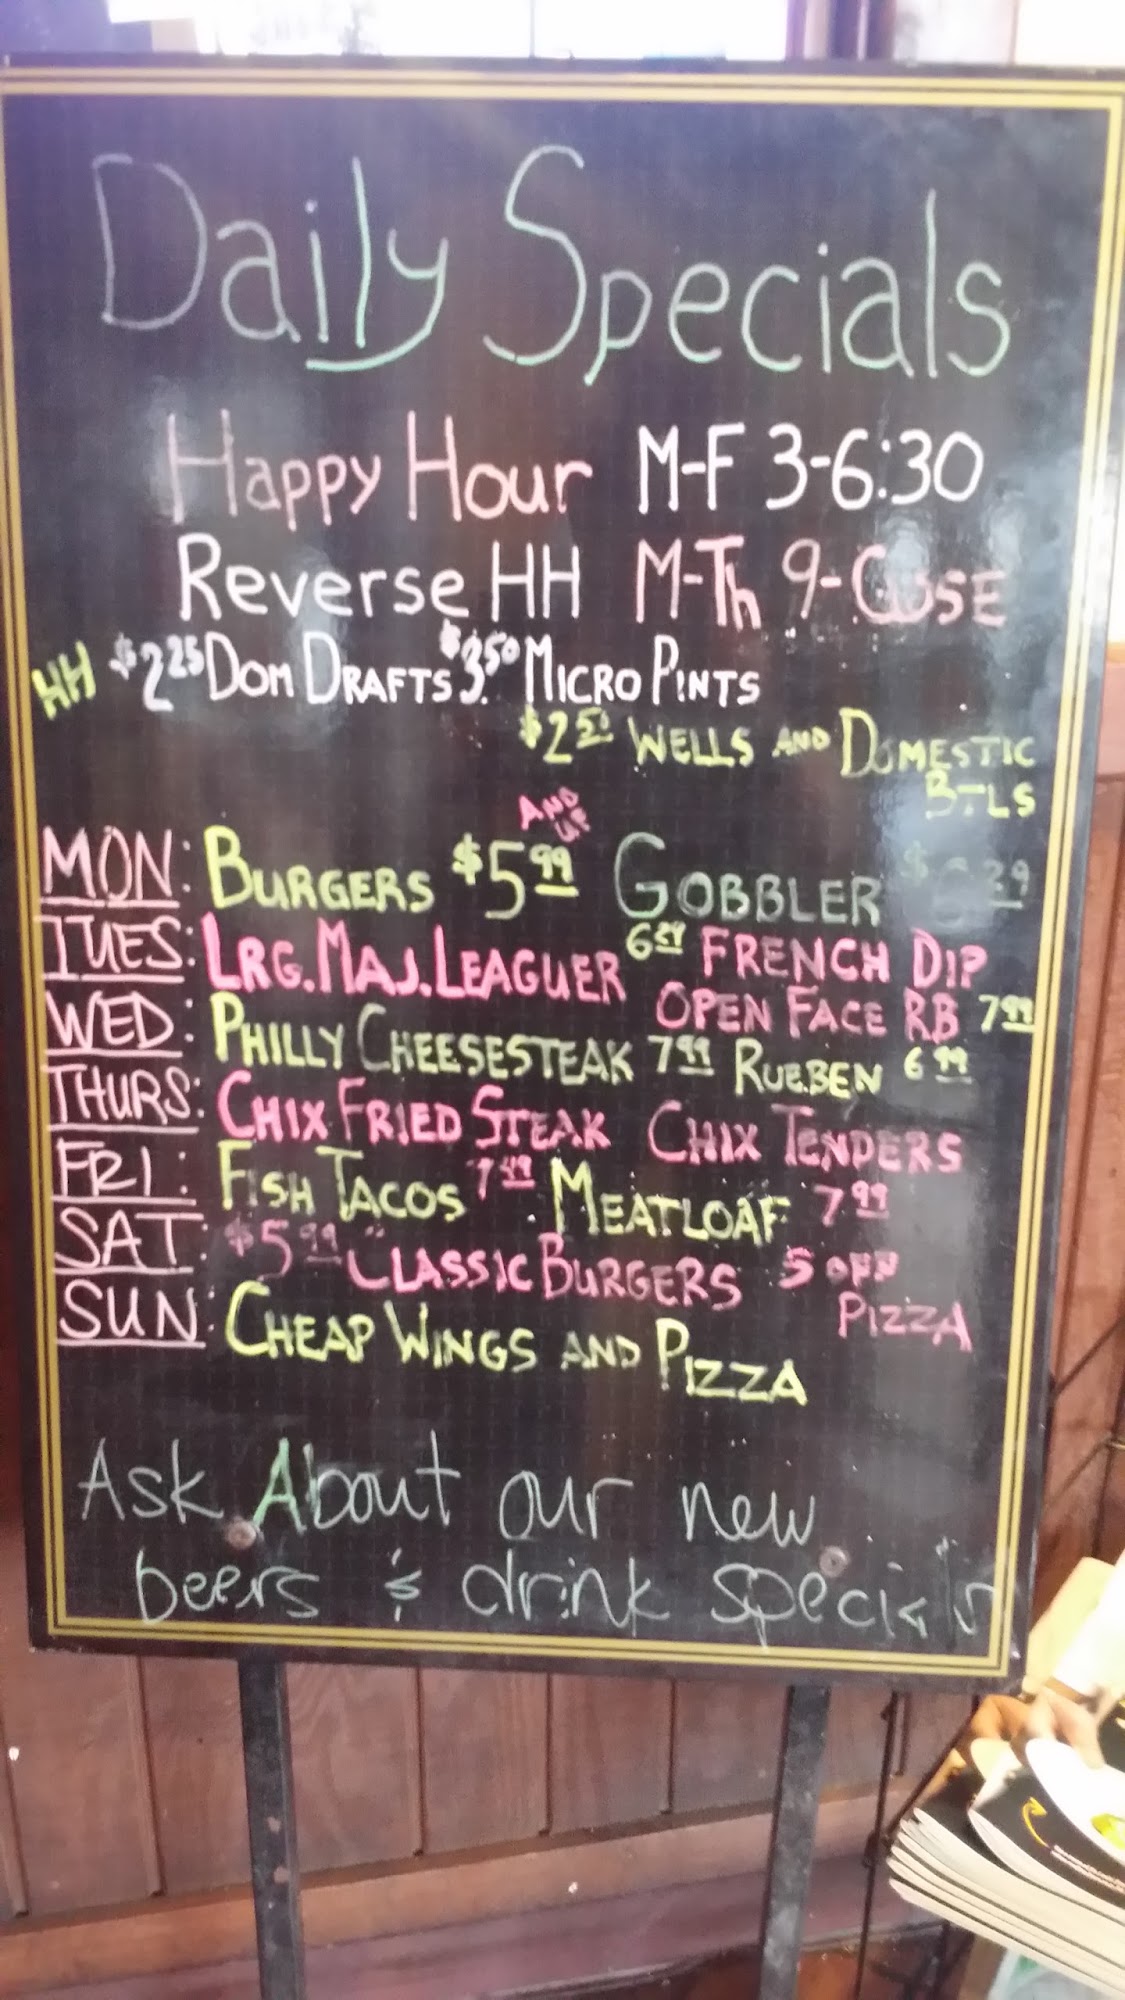 Daily Specials
Happy Hour M-F 3-6:30
Reverse HH M-Th 9-CLOSE
HH $2.25 DOM DRAFTS $3.50 MICRO PINTS
$2.50 WELLS AND DOMESTIC
BTLS
AND UP
MON: BURGERS $5.99 GOBBLER
TUES: LRG. MAJ. LEAGUER 6.99 FRENCH DIP
OPEN FACE RB 7.99
WED: PHILLY CHEESESTEAK 7.99 RUEBEN 6.99
THURS: CHIX FRIED STEAK CHIX TENDERS
FRI: FISH TACOS 7.49 MEATLOAF 7.99
SAT: $5.99 CLASSIC BURGERS 5 OFF
PIZZA
SUN: CHEAP WINGS AND PIZZA
Ask About our new
beers & drink specials